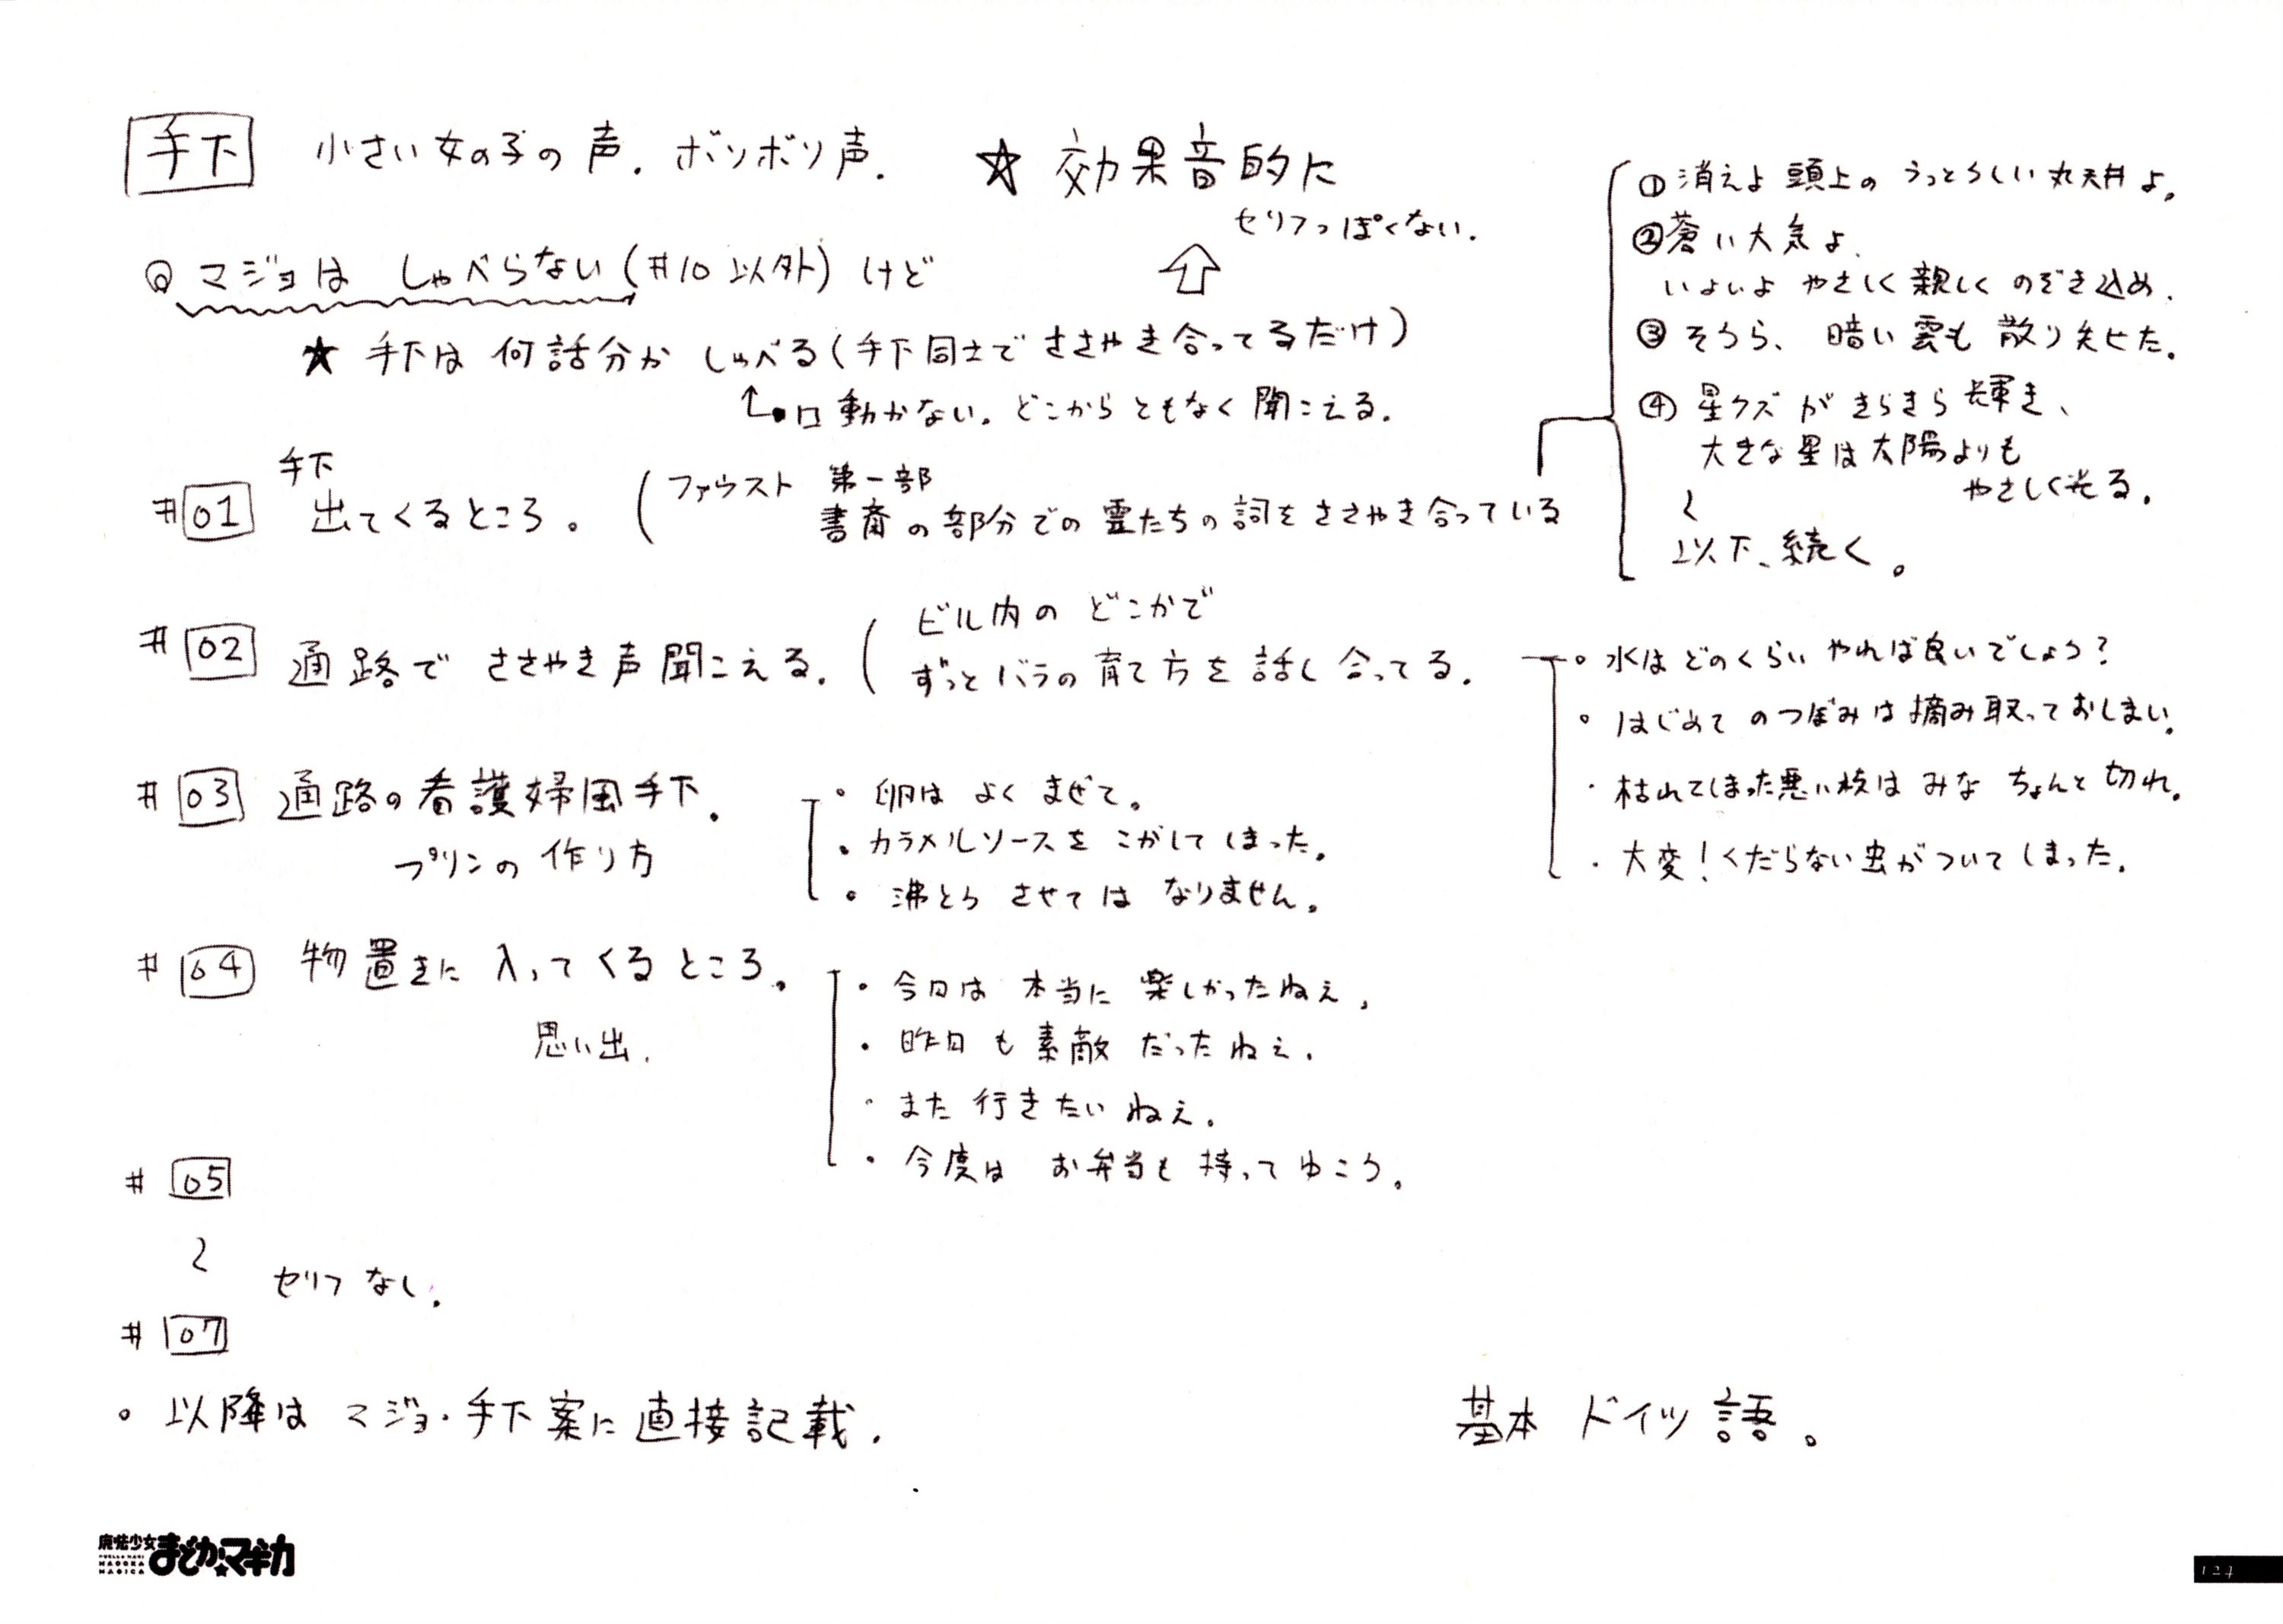 手下 小さい女の子の声. ボソボソ声. ☆ 効果音的に
セリフっぽくない.
◎ マジョは しゃべらない (#10 以外) けど
★ 手下は 何話分か しゃべる (手下同士で ささやき合ってるだけ)
口動かない. どこからともなく聞こえる.
① 消えよ 頭上の うっとうしい 丸天井よ。
② 蒼い大気よ、
いよいよ やさしく 親しく のぞき込め.
③ そうら、暗い雲も 散り失せた。
④ 星クズが きらきら 輝き、
大きな星は太陽よりも
やさしく光る.
〜
以下、続く。
#01 手下
出てくるところ。
(ファウスト 第一部
書斎の部分での 霊たちの詞をささやき合っている
#02 通路で ささやき声聞こえる.
(ビル内の どこかで
ずっとバラの育て方を話し合ってる.
。水は どのくらい やれば良いでしょう?
。はじめて のつぼみは摘み取っておしまい。
・枯れてしまった悪い枝は みな ちょんと 切れ。
・大変! くだらない虫がついてしまった.
#03 通路の看護婦風手下.
プリンの作り方
・卵は よく まぜて。
・カラメルソースを こがしてしまった.
・沸とう させては なりません。
#04 物置きに 入ってくるところ。
思い出.
・今日は 本当に 楽しかったねぇ.
・昨日も 素敵 だったねぇ.
・また 行きたい ねぇ.
・今度は お弁当も 持って ゆこう。
#05
〜
セリフ なし.
#07
。以降は マジョ・手下案に 直接記載.
基本 ドイツ語。
魔法少女
まどか☆マギカ
PUELLA MAGI
MADOKA
MAGICA
127